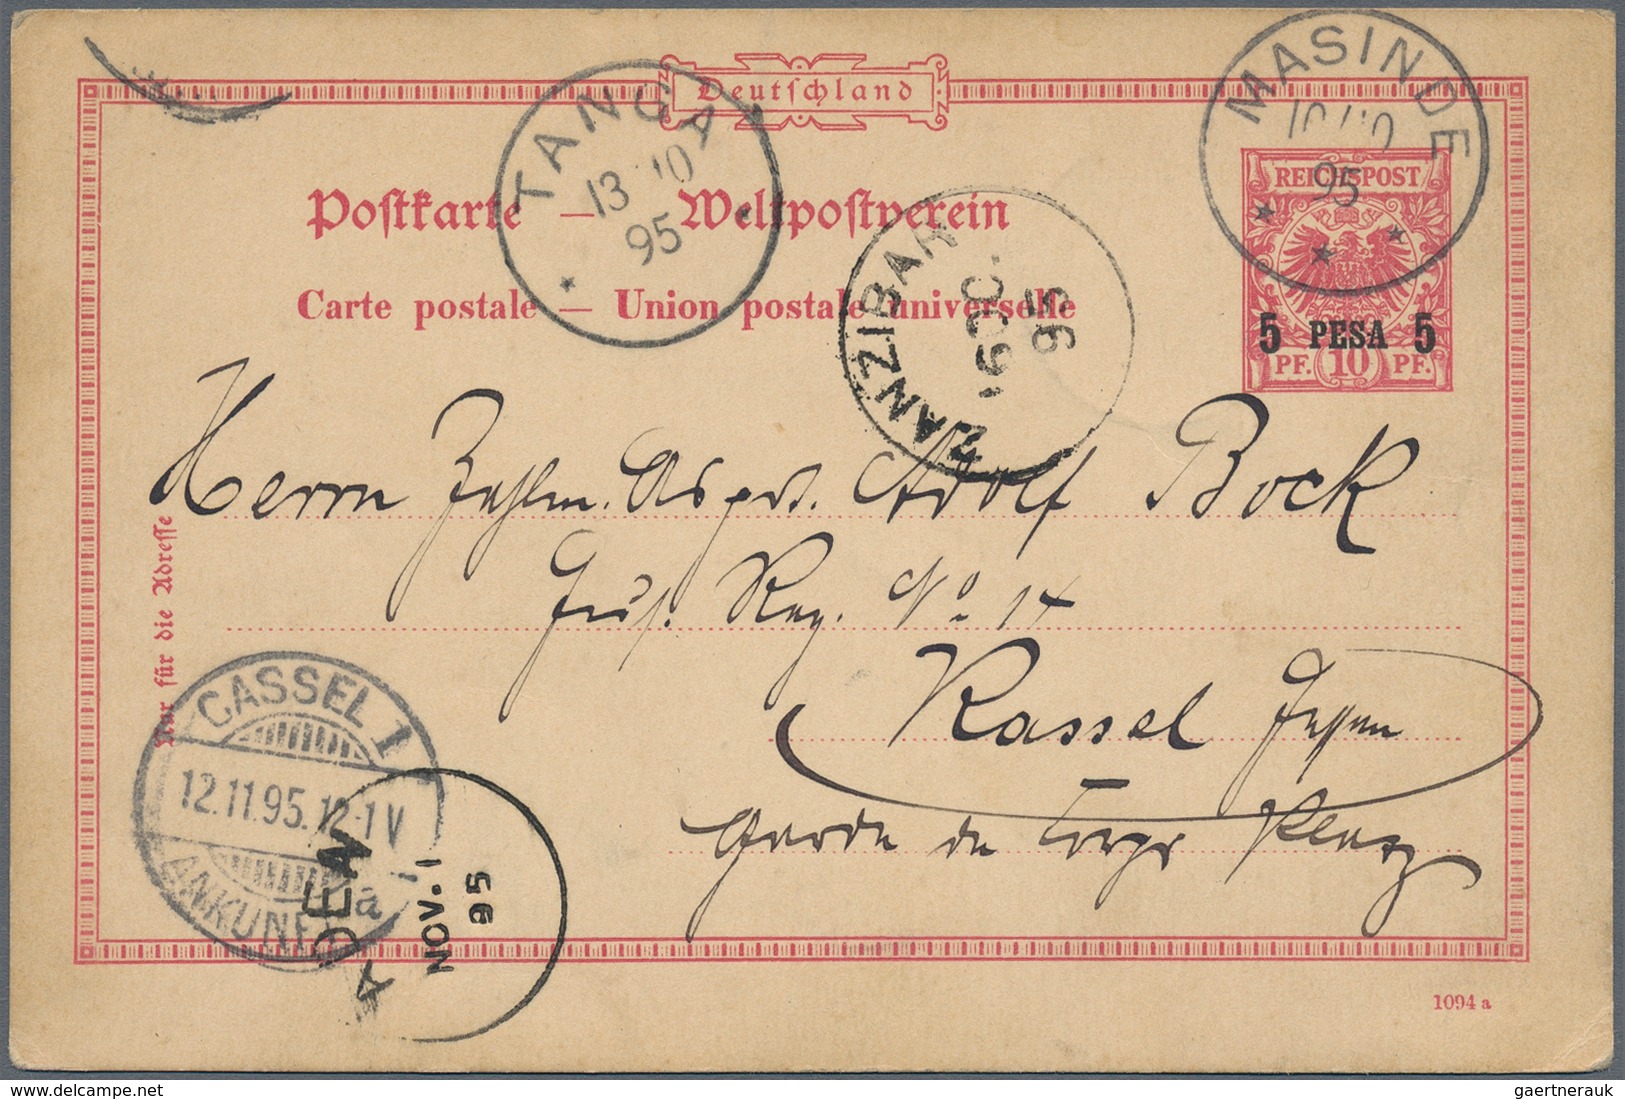 Deutschland
MASINDE
10/10
95
TANGA
13 10
95
REICHSPOST
5 PESA 5
PF. 10 PF.
Postkarte — Weltpostverein
Carte postale — Union postale universelle
ZANZIBAR
OC
95
Herrn Zahlm. Aspir. Adolf Bock
Reg. No 14
Kassel Hessen
Garde du Corps Platz
Nur für die Adresse
CASSEL 1
12.11.95. 12-1 V
a
ANKUNFT
ADEN
NOV. 1
95
1094 a
gaertnerauk